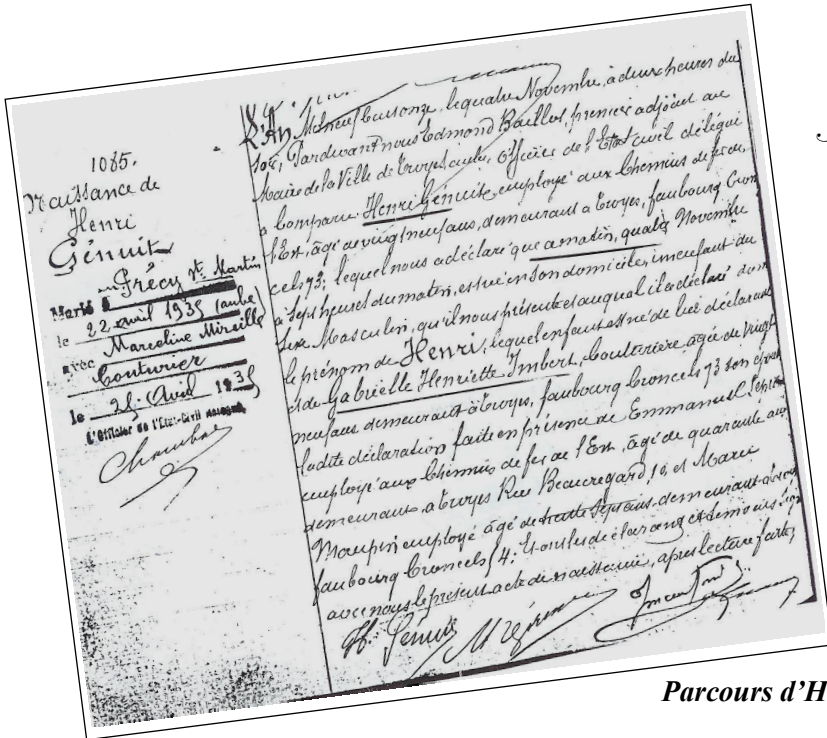 1085.
Naissance de
Henri
Génuit
Marié à Précy St. Martin
le 22 avril 1935 (aube)
avec Marceline Mireille
Couturier
le 25 Avril 1935
L'Officier de l'État-Civil
L'An Mil neuf cent onze, le quatre Novembre, à deux heures du
soir, Pardevant nous Edmond premier adjoint au
Maire de la Ville de Troyes, Officier de l'État civil délégué
a comparu Henri Génuit, employé aux Chemins de fer de
l'Est, âgé de vingt neuf ans, demeurant à Troyes, faubourg Cron
cels 73; lequel nous a déclaré que ce matin, quatre Novembre
à sept heures du matin, est né en son domicile, un enfant du
sexe Masculin, qu'il nous présente et auquel il a déclaré donner
le prénom de Henri, lequel enfant est né de lui déclarant
et de Gabrielle Henriette Imbert, Couturière âgée de vingt
neuf ans demeurant à Troyes, faubourg Croncels 73 son épouse
ladite déclaration faite en présence de Emmanuel
employé aux Chemins de fer de l'Est, âgé de quarante ans
demeurant à Troyes Rue Beauregard, 10, et Marie
Maupin employé âgé de trente sept ans demeurant à Troyes
faubourg Croncels 54; et ont les déclarant et témoins signé
avec nous le présent acte de naissance, après lecture faite,
H. Génuit
Parcours d'H